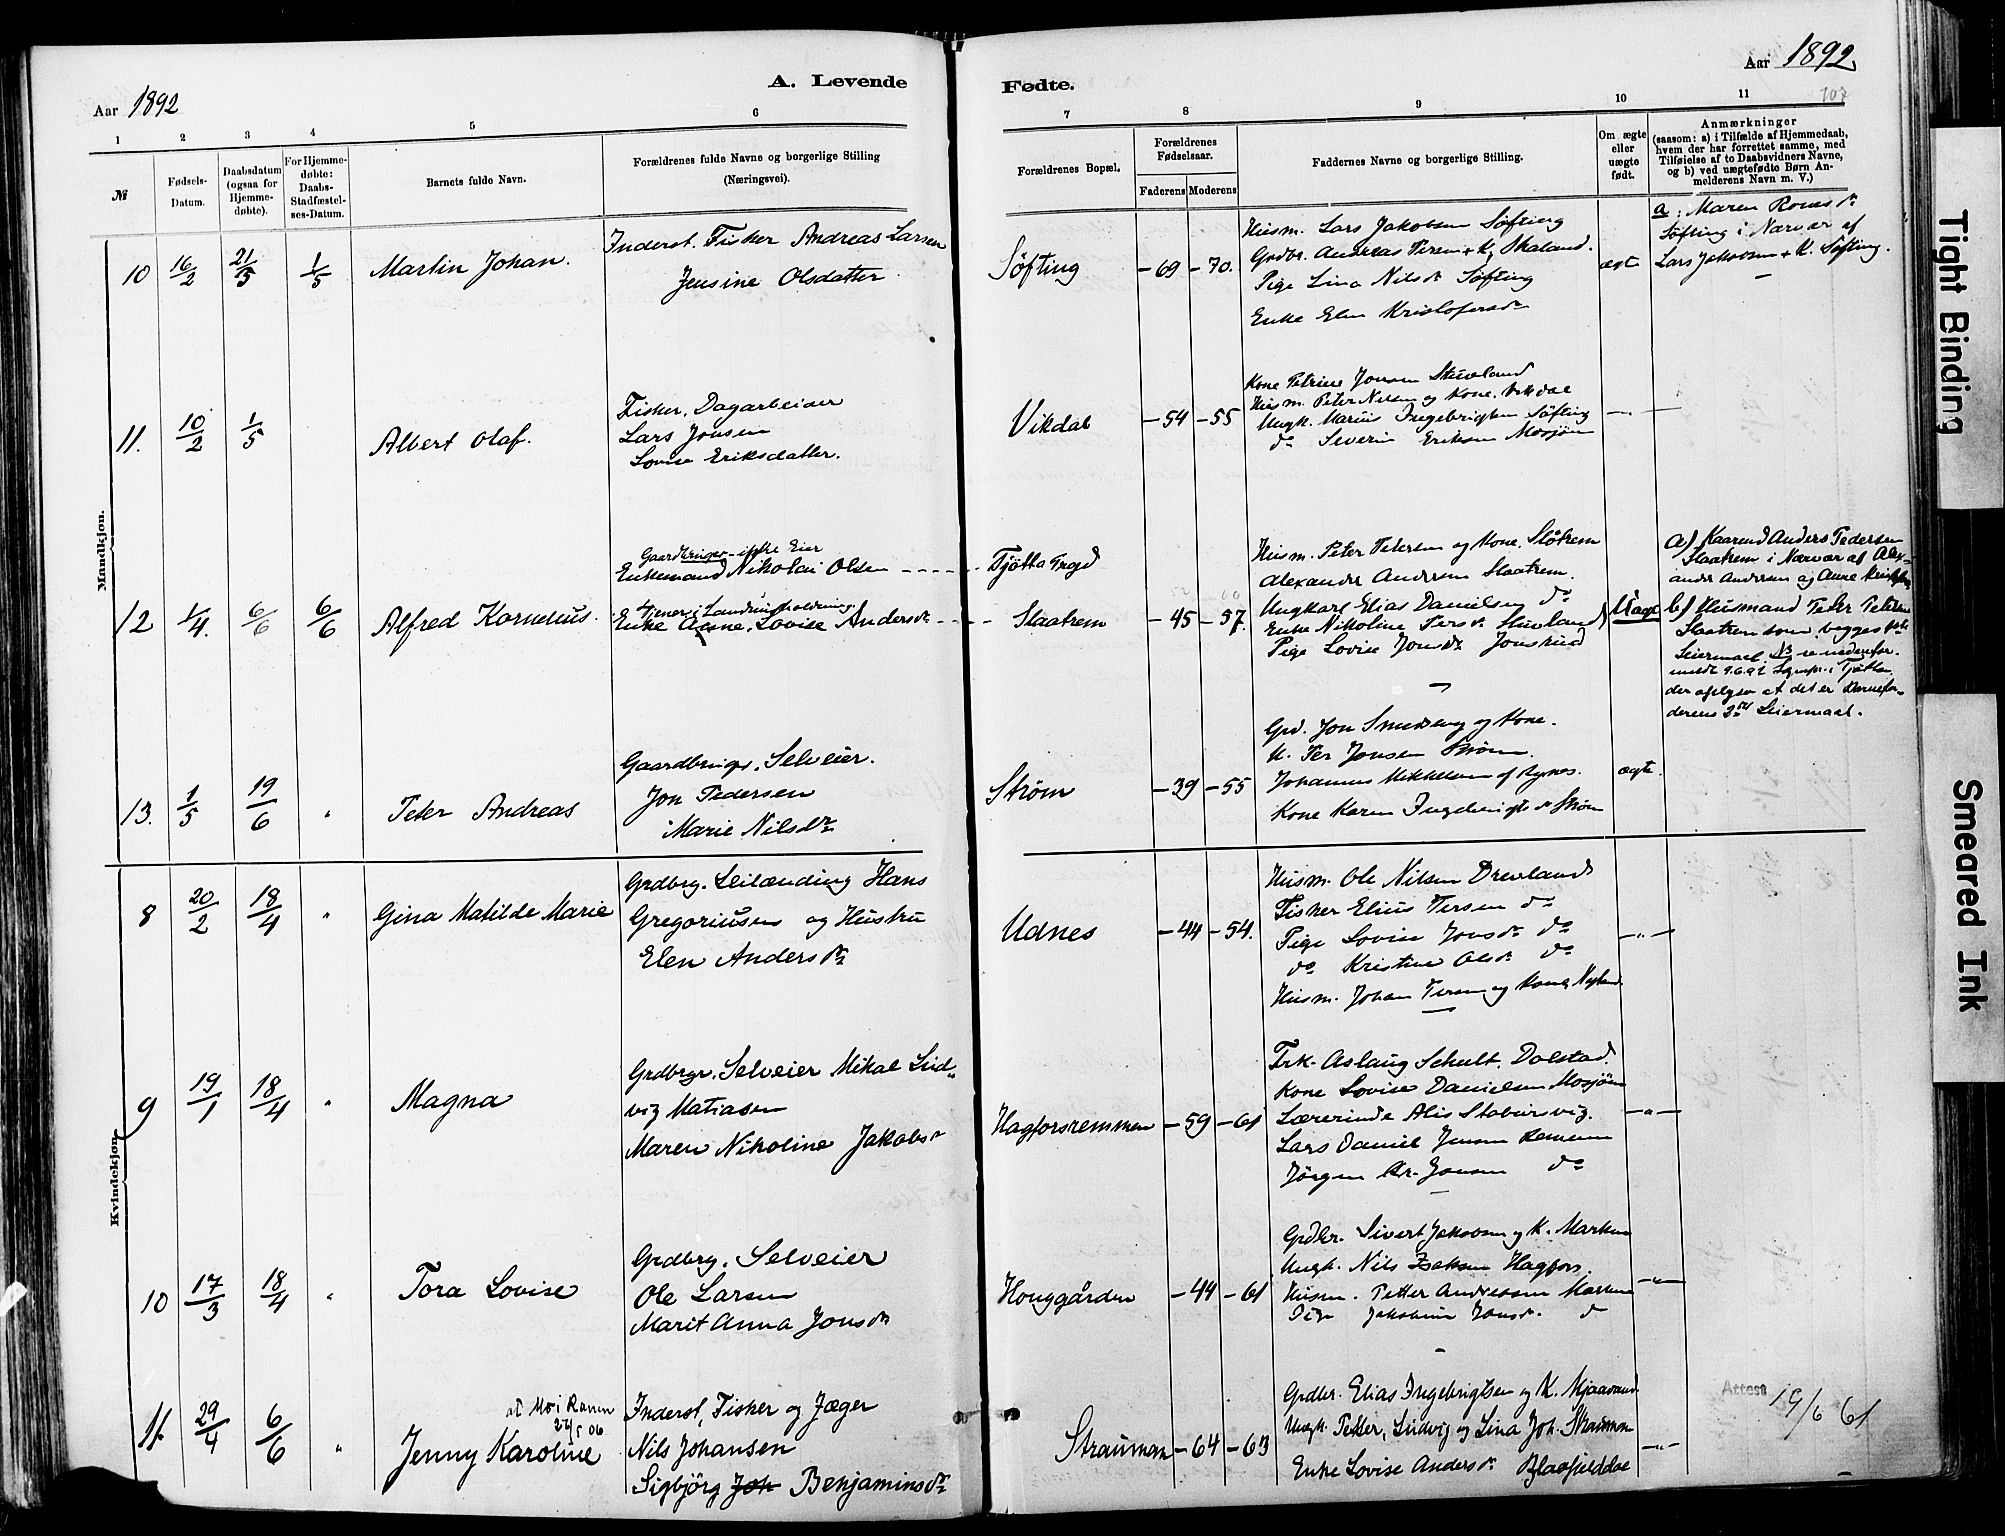 Aar 1892
A. Levende
Fødte.
Aar 1892.
107
1
2
3
4
5
6
7
8
9
10
11
№
Fødsels-
Datum.
Daabsdatum
(ogsaa for
Hjemme-
døbte).
For Hjemme-
døbte:
Daabs-
Stadfæstel-
ses-Datum.
Barnets fulde Navn.
Forældrenes fulde Navne og borgerlige Stilling
(Næringsvei).
Forældrenes Bopæl.
Forældrenes
Fødselsaar.
Faderens Moderens
Faddernes Navne og borgerlige Stilling.
Om ægte
eller
uægte
født.
Anmærkninger
(saasom: a) i Tilfælde af Hjemmedaab,
hvem der har forrettet samme, med
Tilføielse af to Daabsvidners Navne,
og b) ved uægtefødte Børn An-
melderens Navn m. V.)
Mandkjøn.
10 16/2 21/3 1/5 Martin Johan.
Inderst. Fisker Andreas Larsen
Jensine Olsdatter
Søfting -69 -70.
Husm. Lars Jakobsen Søfting
Grdbr. Andreas Persen + K. Skaland.
Pige Lina Nilsdr Søfting
Enke Elen Kristofersdr
ægte
a. Maren Ronesdr
Søfting i Nærvær af
Lars Jakobsen + K. Søfting.
11. 10/2 1/5 Albert Olaf.
Fisker, Dagarbeider
Lars Jonsen
Lovise Eriksdatter.
Vikdal -54 -55
Kone Petrine Jonsen
Husm. Peter Nilsen og Kone. Vikdal
Ungk. Marius Ingebrigtsen Søfting
do Severin Eriksen Mosjøen
12 1/4. 6/6 6/6 Alfred Kornelius.
Gaardbruger-ikke Eier
Enkemand Nikolai Olsen
Tjener i Landhusholdning
Enke Anne Lovise Andersdr
Tjøtta Prgd
Slaatrem -45 -57.
Husm. Peter Petersen og Kone. Slåtrem
Alexander Andersen Slaatrem.
Ungkarl Elias Danielsen do
Enke Nikoline Persdr
Pige Lovise Jonsdr
Uægte
a) Anders Pedersen
Slaatrem i Nærvær af Alex-
ander Andersen og Anne
b) Husmand Peter Petersen
Slaatrem som begges
Leiermaal
der oplyser at det er Barnefa-
derens 2det Leiermaal.
13. 1/5 19/6 " Peter Andreas
Gaardbruger. Selveier.
Jon Pedersen
Marie Nilsdr
Strøm -39 -55
Grd. Jon Smedseng og Kone.
U. Per Jonsen Strøm.
Johannes Mikkelsen af Rynes.
Kone Karen Ingebrigtsdr Strøm
ægte.
Kvindekjøn.
8 20/2 18/4 " Gina Matilde Marie
Grdbrg. Leilænding Hans
Gregoriusen og Hustru
Elen Andersdr
Udnes -44 -54.
Husm. Ole Nilsen Drevland
Fisker Elius Persen do
Pige Lovise Jonsdr do
do Kristine Olsdr do
Husm. Johan Persen og Kone Nyland
9 19/1 18/4 " Magna
Grdbrgr. Selveier Mikal Lud-
vig Matiasen
Maren Nikoline Jakobsdr
Hagforsremmen -59 -61
Frk. Aslaug Schult. Dolstad.
Kone Lovise Danielsen Mosjøen
Lærerinde Alis Stabursvig.
Lars Daniel Jensen Remmen
Jørgen Kr. Jonsen do
10 17/3 18/4 " Tora Lovise
Grdbrg. Selveier
Ole Larsen
Marit Anna Jonsdr
Honggården -44 -61
Grdbr. Sivert Jakobsen og K. Marken
Ungk. Nils Isaksen Hagfors.
Husm. Petter Andreasen Marken
Pige Jakobine Jonsdr. d
11. 29/4 6/6 " Jenny Karoline
at Mo i Ranen
27/5 06
Inderst, Fisker og Jæger
Nils Johansen
Sigbjørg Joh Benjaminsdr
Strauman -64 -63
Grdbr. Elias Ingebrigtsen og K. Mjaavand
Ungk. Petter, Ludvig og Lina Joh. Strauman
Enke Lovise Andersdr Blaafjelddal
Attest 19/6 61
Tight Binding
Smeared Ink